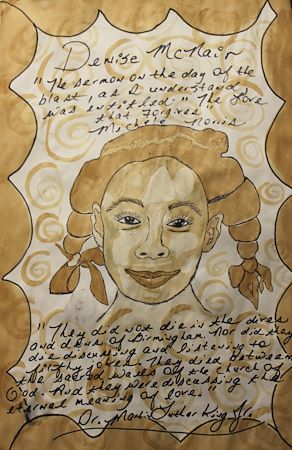 Denise McNair
"The sermon on the day of the
blast, as I understand
was intitled "The Love
that Forgives"
Michele Norris
"They did not die in the dives
and dens of Birmingham. Nor did they
die discussing and listening to
filthy jokes. They died between
the sacred walls of the church of
God. And they were discussing the
eternal meaning of love."
Dr. Martin Luther King Jr.